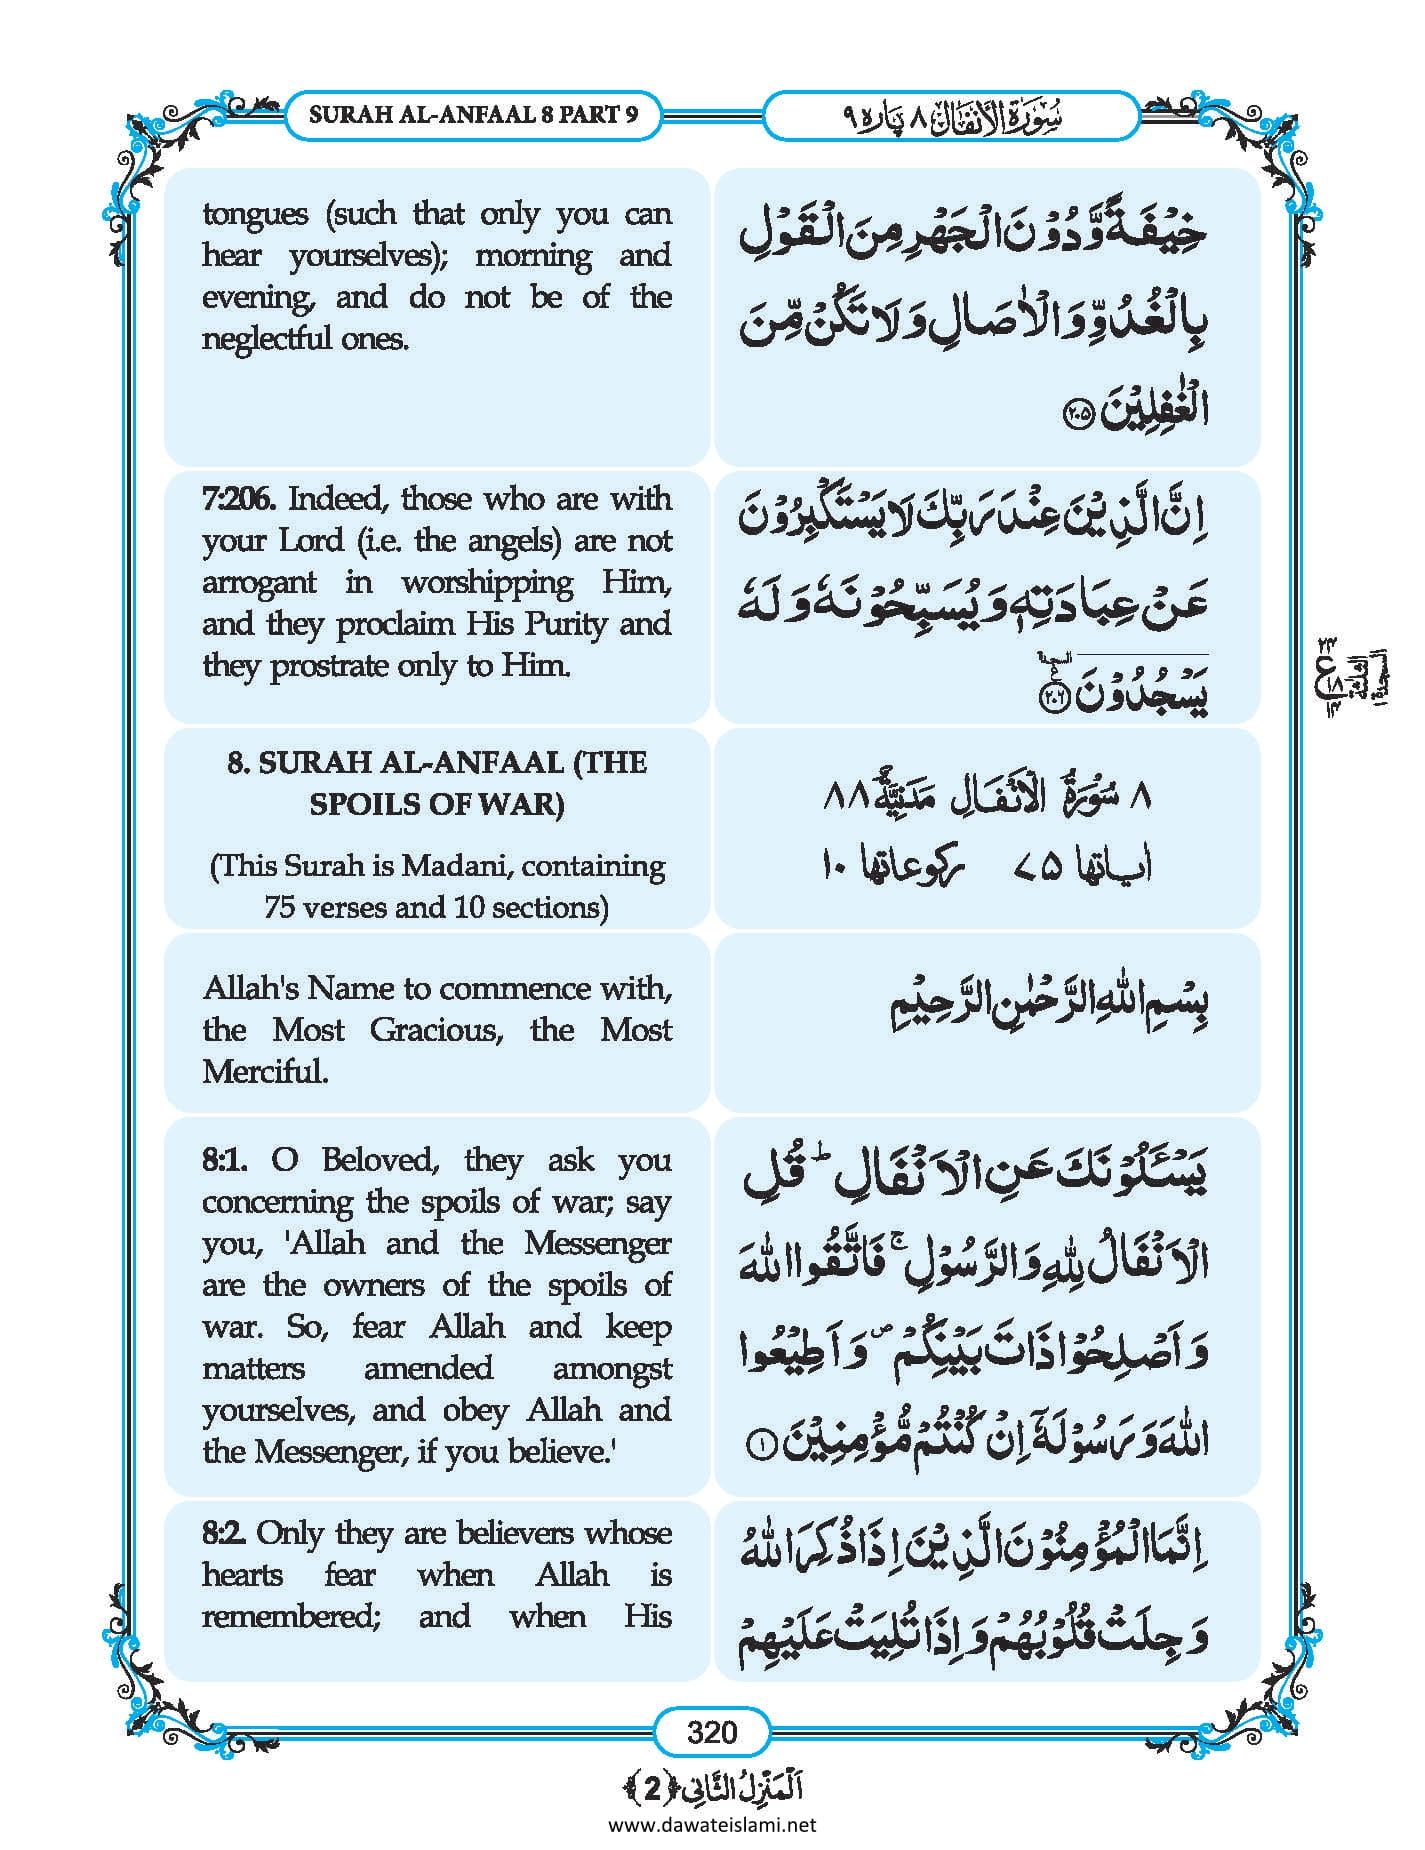 SURAH AL-ANFAAL 8 PART 9
سُوْرَةُ الْأَنْفَال ٨ پاره ٩
tongues (such that only you can
hear yourselves); morning and
evening, and do not be of the
neglectful ones.
خِیْفَةً وَّ دُوْنَ الْجَهْرِ مِنَ الْقَوْلِ
بِالْغُدُوِّ وَ الْاٰصَالِ وَ لَا تَكُنْ مِّنَ
الْغٰفِلِیْنَ ﴿۲۰۵﴾
7:206. Indeed, those who are with
your Lord (i.e. the angels) are not
arrogant in worshipping Him,
and they proclaim His Purity and
they prostrate only to Him.
اِنَّ الَّذِیْنَ عِنْدَ رَبِّكَ لَا یَسْتَكْبِرُوْنَ
عَنْ عِبَادَتِهٖ وَ یُسَبِّحُوْنَهٗ وَ لَهٗ
یَسْجُدُوْنَ ﴿۲۰۶﴾ السجدة ع
۲۳
ع
۱۸
۱۴
8. SURAH AL-ANFAAL (THE
SPOILS OF WAR)
(This Surah is Madani, containing
75 verses and 10 sections)
۸ سُوْرَةُ الْاَنْفَالِ مَدَنِیَّةٌ ۸۸
اٰیاتها ۷۵ رکوعاتها ۱۰
Allah's Name to commence with,
the Most Gracious, the Most
Merciful.
بِسْمِ اللّٰهِ الرَّحْمٰنِ الرَّحِیْمِ
8:1. O Beloved, they ask you
concerning the spoils of war; say
you, 'Allah and the Messenger
are the owners of the spoils of
war. So, fear Allah and keep
matters amended amongst
yourselves, and obey Allah and
the Messenger, if you believe.'
یَسْـَٔلُوْنَكَ عَنِ الْاَنْفَالِ ؕ قُلِ
الْاَنْفَالُ لِلّٰهِ وَ الرَّسُوْلِ ۚ فَاتَّقُوا اللّٰهَ
وَ اَصْلِحُوْا ذَاتَ بَیْنِكُمْ ۪ وَ اَطِیْعُوا
اللّٰهَ وَ رَسُوْلَهٗۤ اِنْ كُنْتُمْ مُّؤْمِنِیْنَ ﴿۱﴾
8:2. Only they are believers whose
hearts fear when Allah is
remembered; and when His
اِنَّمَا الْمُؤْمِنُوْنَ الَّذِیْنَ اِذَا ذُكِرَ اللّٰهُ
وَ جِلَتْ قُلُوْبُهُمْ وَ اِذَا تُلِیَتْ عَلَیْهِمْ
320
اَلْمَنْزِلُ الثَّانِی ﴿2﴾
www.dawateislami.net